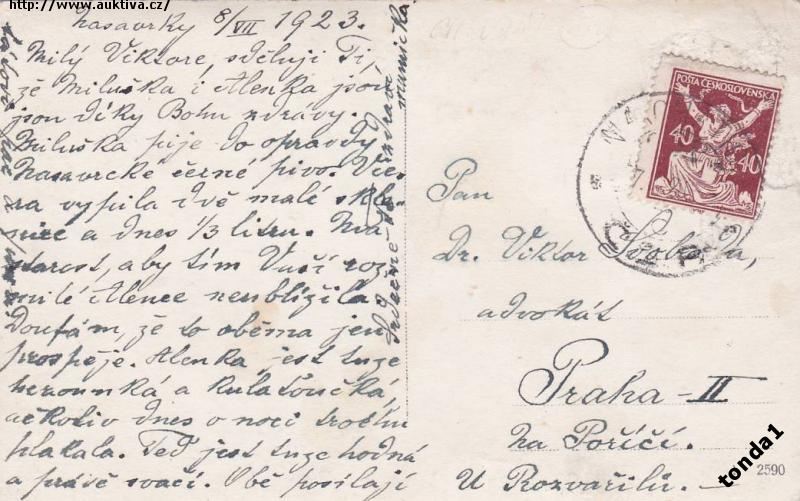 http://www.auktiva.cz/
Nasavrky 8/VII 1923.
Milý Viktore, sděluji Ti,
že Miluška i Alenka jsou
jsou díky Bohu zdrávy.
Miluška pije do opravdy
Nasavrcké černé pivo. Vče-
ra vypila dvě malé skle-
nice a dnes 1/3 litru. Má
starost, aby tím Vaší roz-
milé Alence neublížila.
Doufám, že to oběma jen
prospěje. Alenka jest tuze
heounká a kulaťoučká,
ačkoliv dnes o noci trochu
plakala. Teď jest tuze hodná
a právě svačí. Obě posílají
Srdečně zdraví
mamička
POŠTA ČESKOSLOVENSKÁ
40 40
Pan
Dr. Viktor Svoboda,
advokát
Praha - II
Na Poříčí.
U Rozvařilů.
2590
tonda1